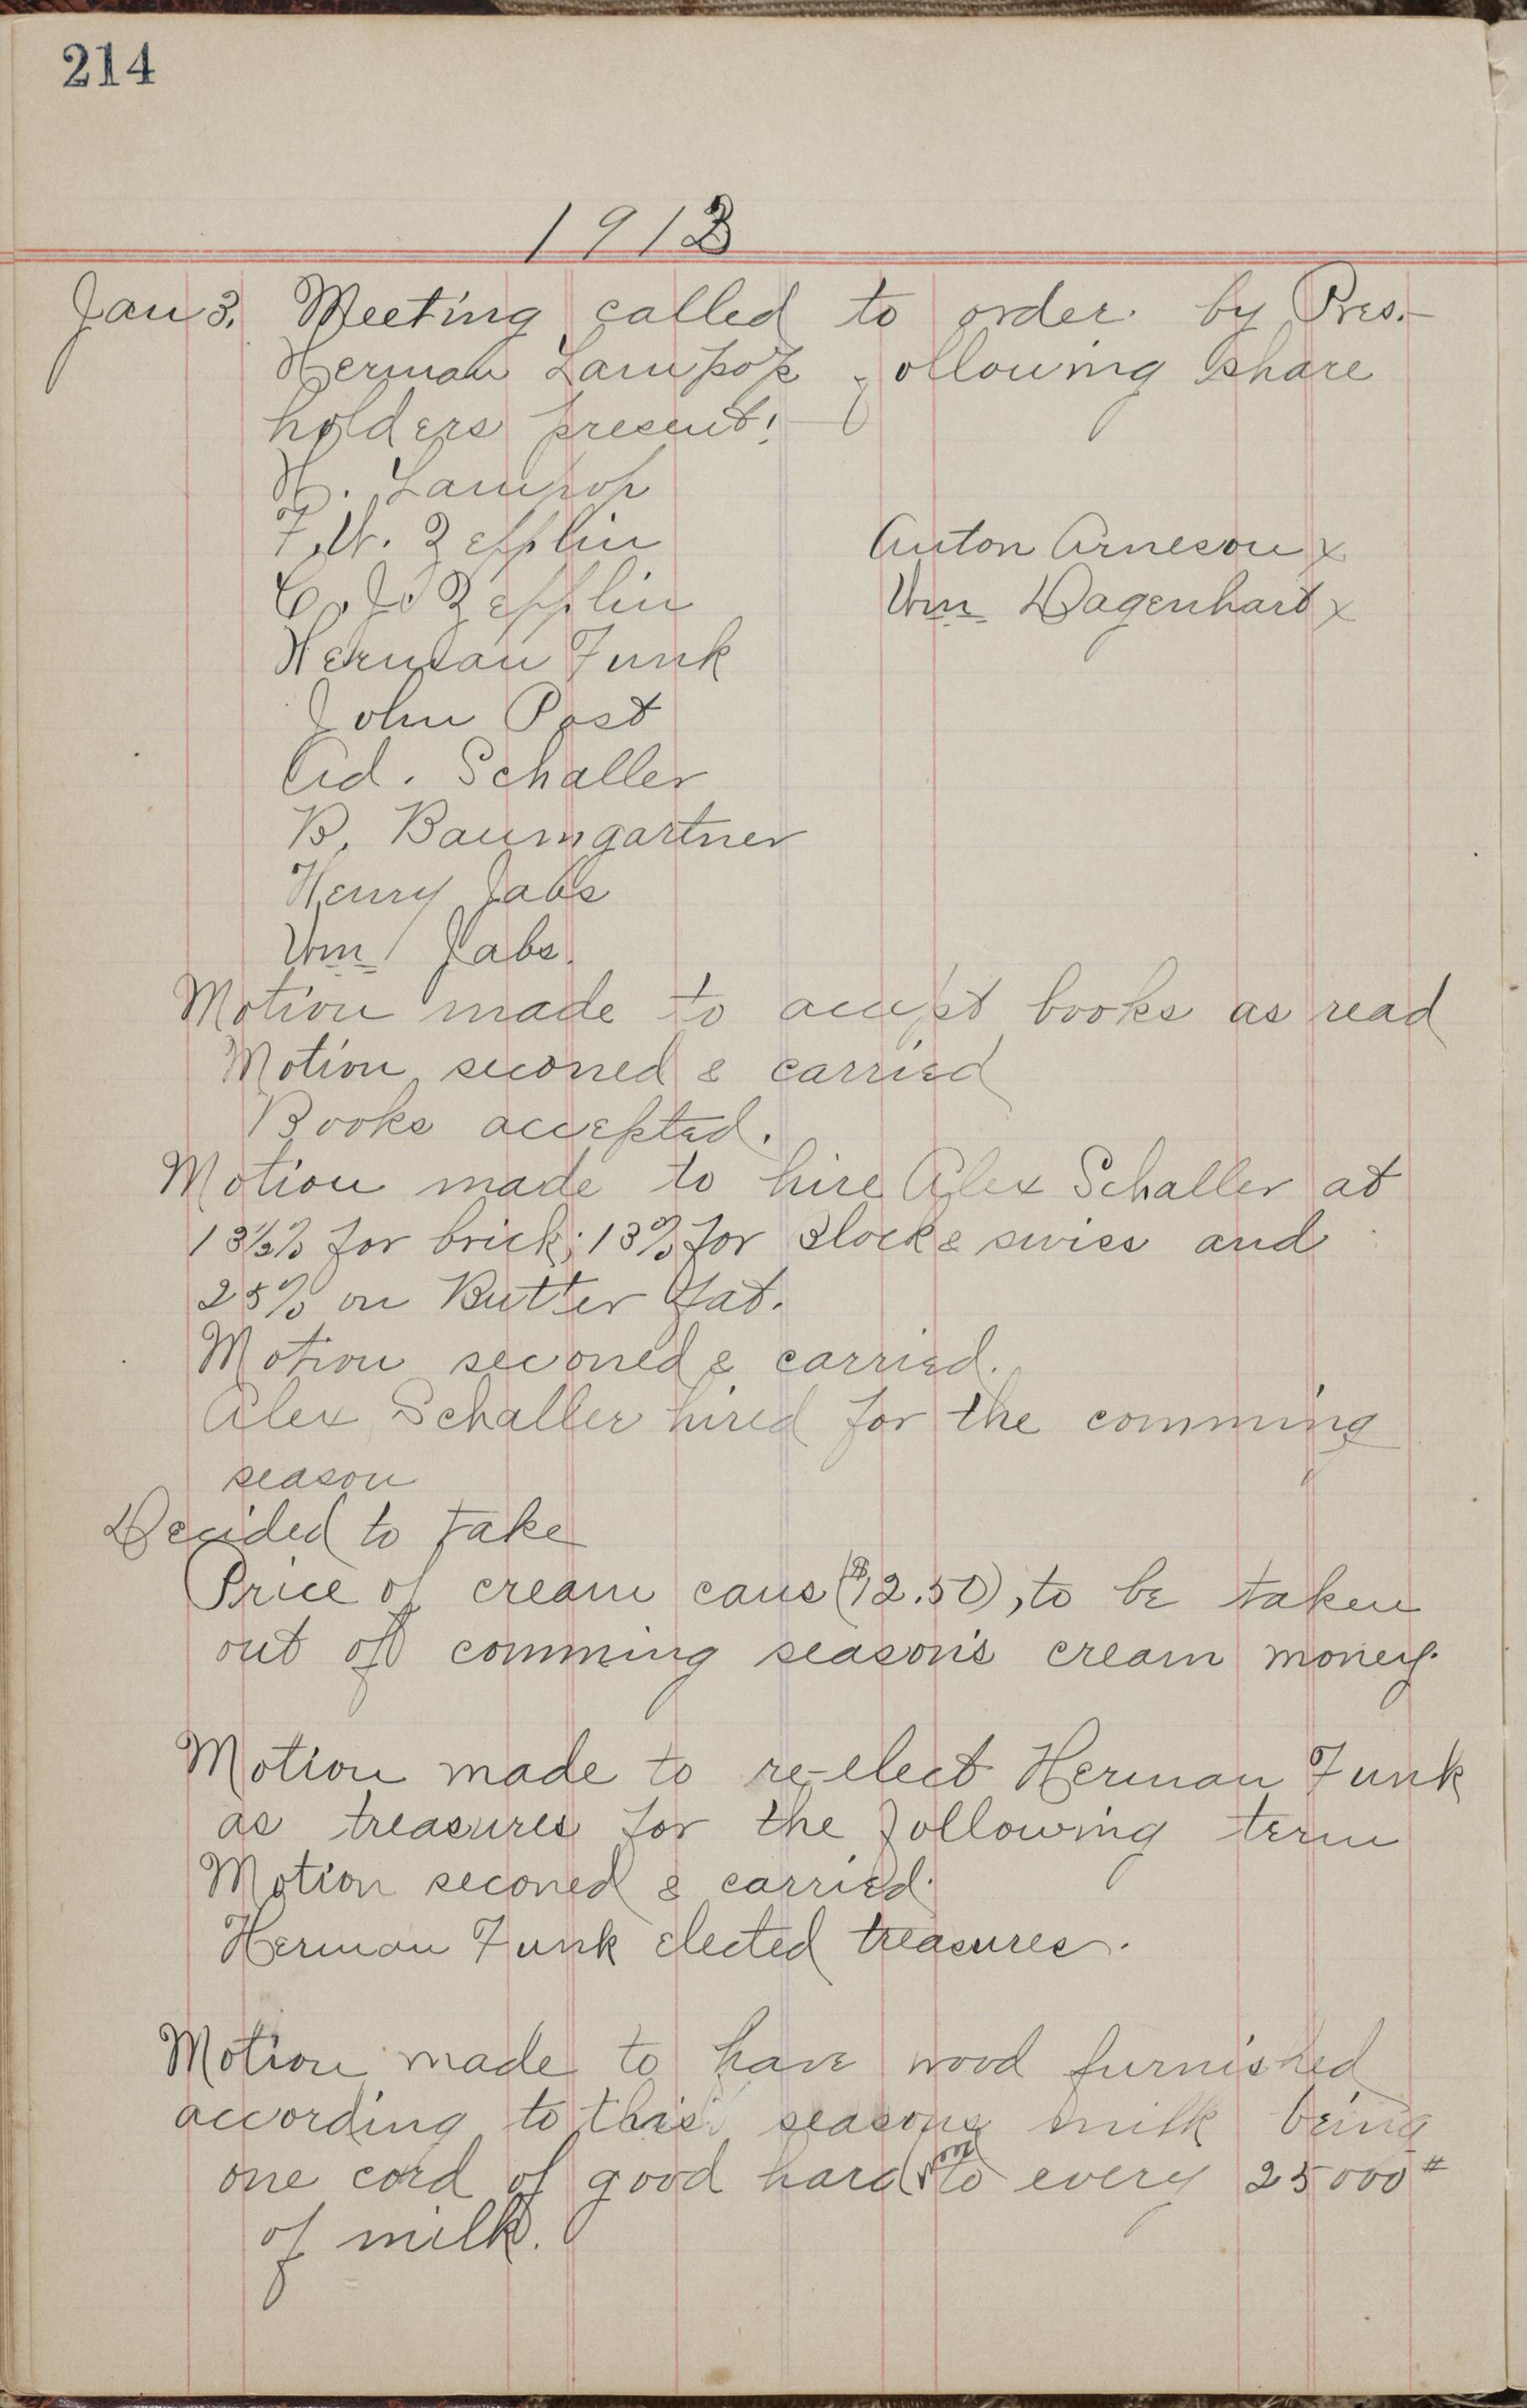 214
1913
Jan 3. Meeting called to order by Pres.-
Herman Lampop following share
holders present!
H. Lampop
F. W. Zepplin
Anton Arneson x
C. J. Zepplin
Wm Dagenhart x
Herman Funk
John Post
Ad. Schaller
B. Baumgartner
Henry Jabs
Wm Jabs.
Motion made to accept books as read
Motion seconed & carried
Books accepted.
Motion made to hire Alex Schaller at
13½% for brick; 13% for Block & swiss and
25% on Butter fat.
Motion seconed & carried.
Alex Schaller hired for the comming
season
Decided to take
Price of cream cans ($12.50), to be taken
out of comming season's cream money.
Motion made to re-elect Herman Funk
as treasurer for the following term
Motion seconed & carried.
Herman Funk elected treasurer.
Motion made to have wood furnished
according to this seasons milk being
one cord of good hard to every 25000#
of milk.